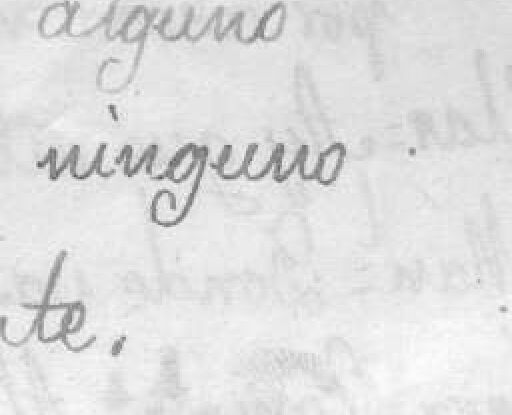 alguno
ninguno
te.